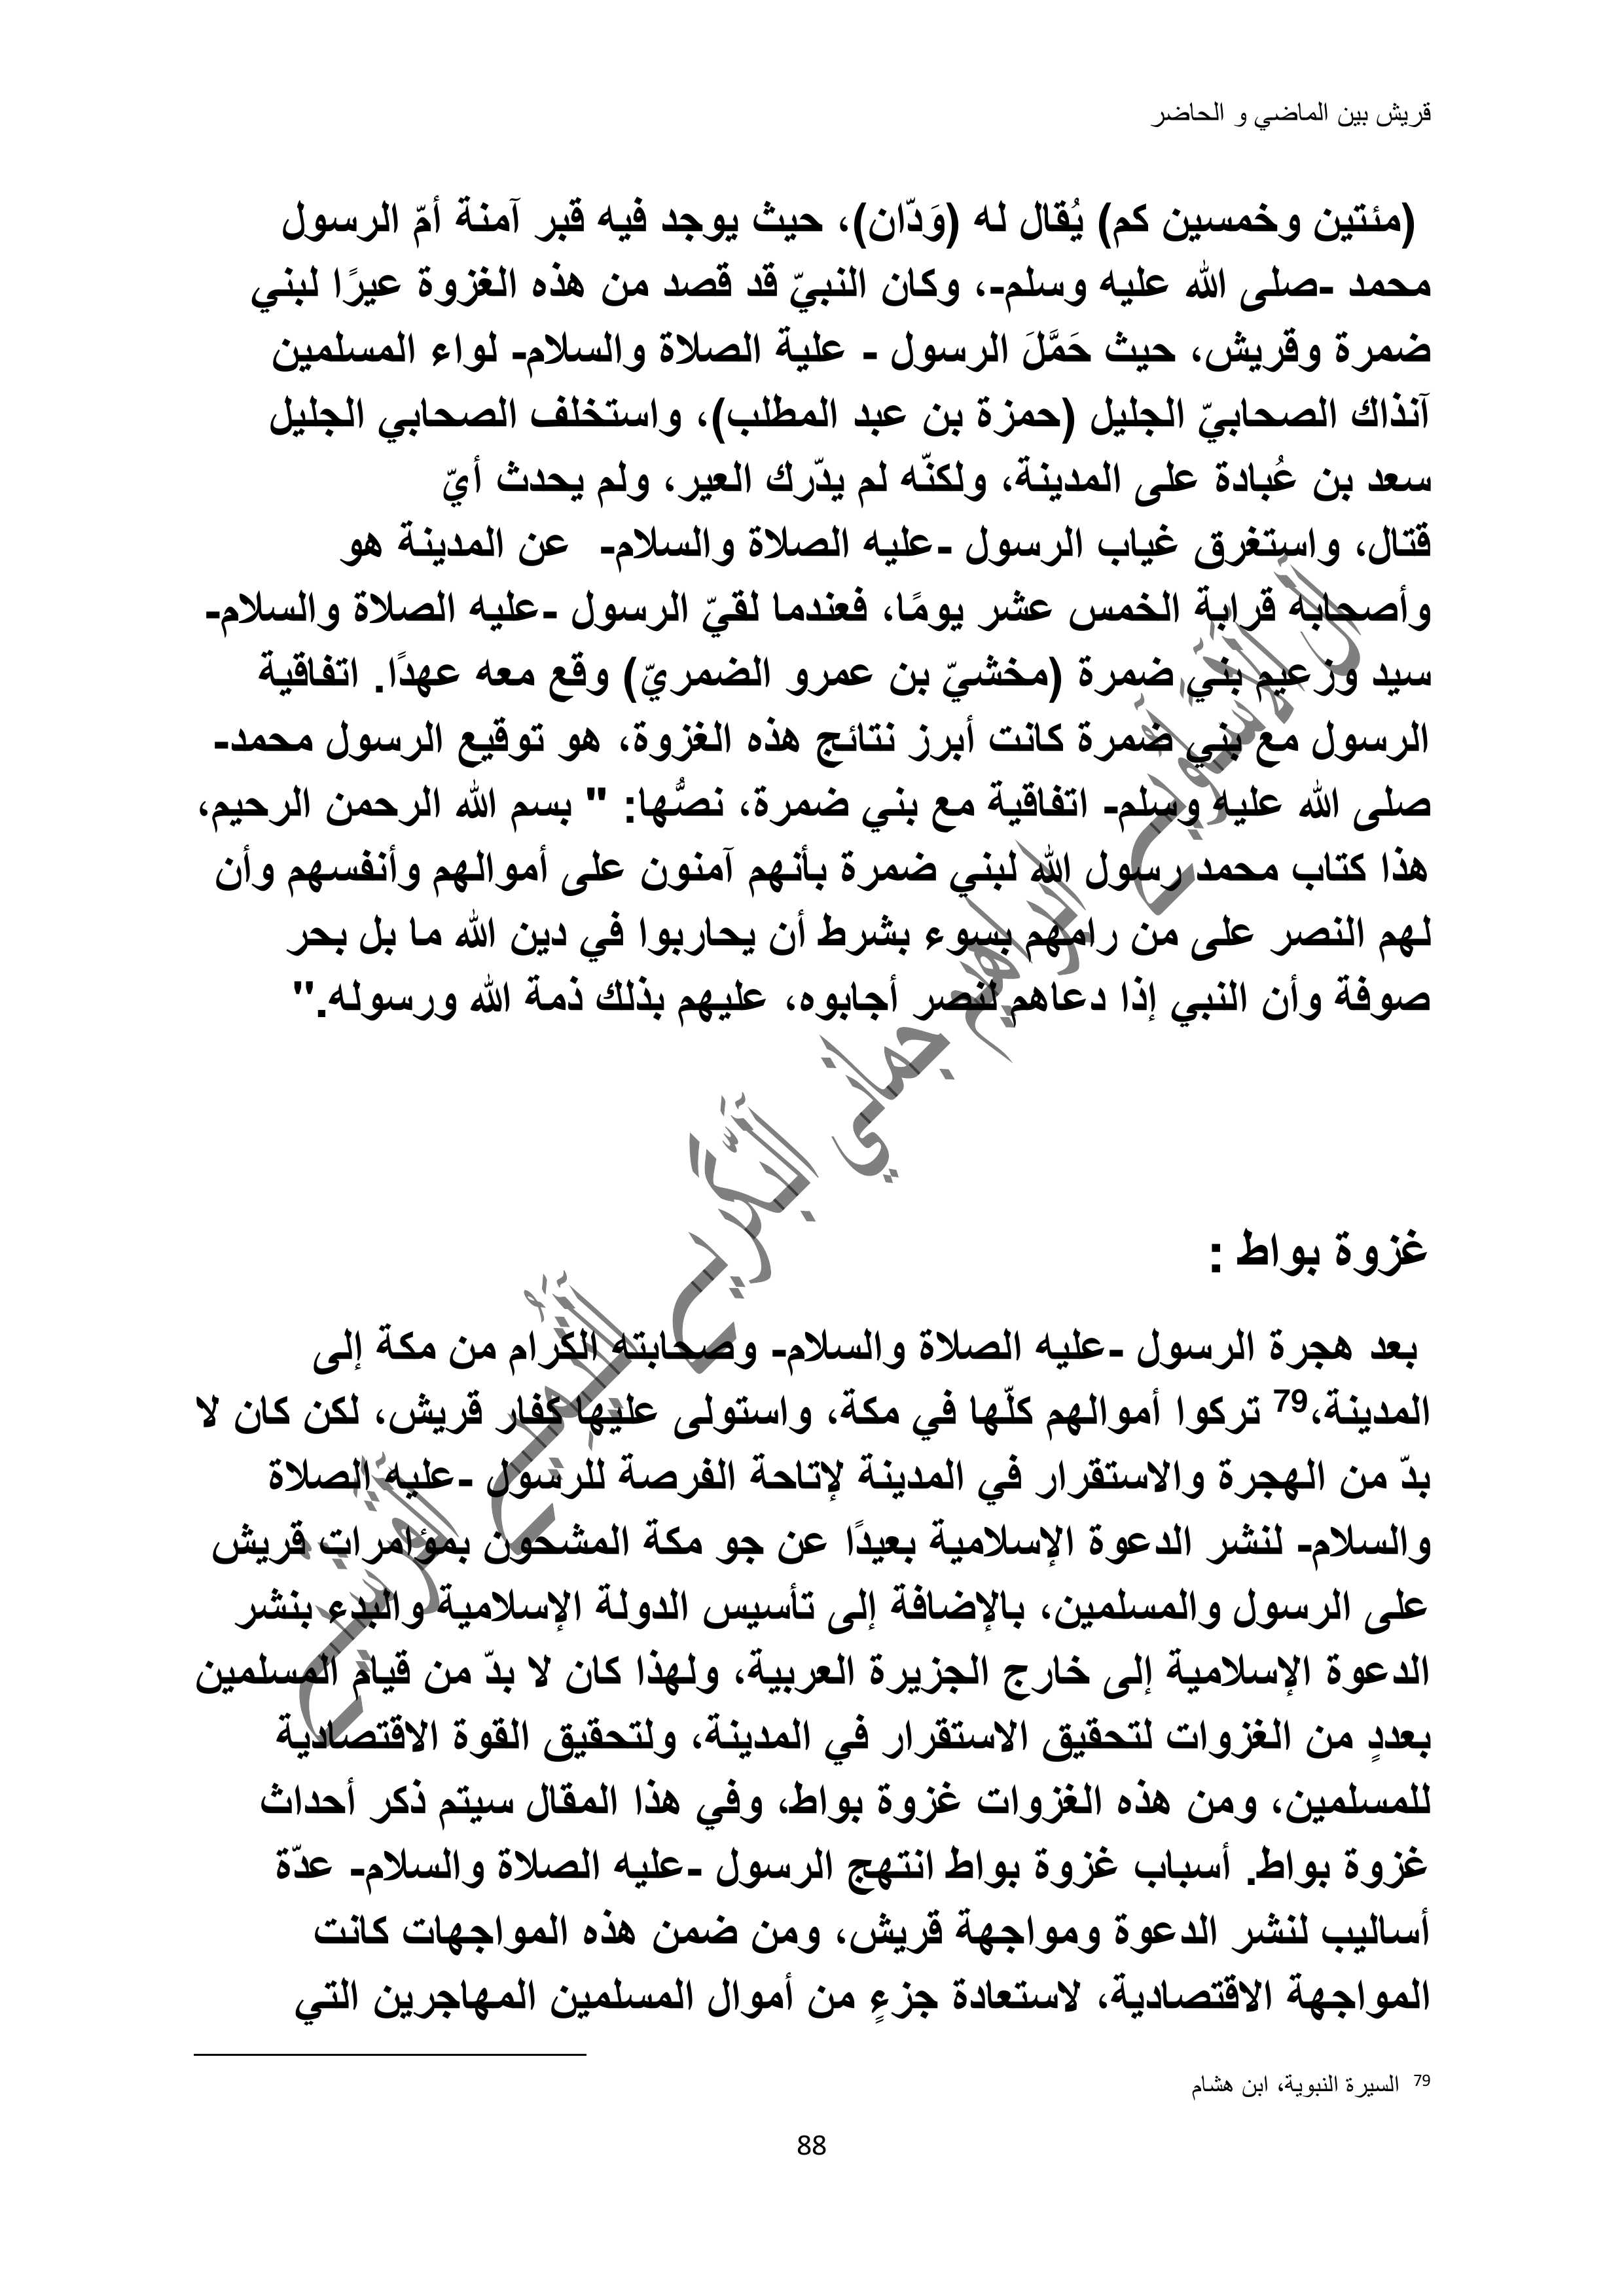 قريش بين الماضي و الحاضر
(مئتين وخمسين كم) يُقال له (وَدّان)، حيث يوجد فيه قبر آمنة أمّ الرسول
محمد -صلى الله عليه وسلم-، وكان النبيّ قد قصد من هذه الغزوة عيرًا لبني
ضمرة وقريش، حيث حَمَّلَ الرسول - علية الصلاة والسلام- لواء المسلمين
آنذاك الصحابيّ الجليل (حمزة بن عبد المطلب)، واستخلف الصحابي الجليل
سعد بن عُبادة على المدينة، ولكنّه لم يدّرك العير، ولم يحدث أيّ
قتال، واستغرق غياب الرسول -عليه الصلاة والسلام- عن المدينة هو
وأصحابه قرابة الخمس عشر يومًا، فعندما لقيّ الرسول -عليه الصلاة والسلام-
سيد وزعيم بني ضمرة (مخشيّ بن عمرو الضمريّ) وقع معه عهدًا. اتفاقية
الرسول مع بني ضمرة كانت أبرز نتائج هذه الغزوة، هو توقيع الرسول محمد-
صلى الله عليه وسلم- اتفاقية مع بني ضمرة، نصُّها: " بسم الله الرحمن الرحيم،
هذا كتاب محمد رسول الله لبني ضمرة بأنهم آمنون على أموالهم وأنفسهم وأن
لهم النصر على من رامهم بسوء بشرط أن يحاربوا في دين الله ما بل بحر
صوفة وأن النبي إذا دعاهم لنصر أجابوه، عليهم بذلك ذمة الله ورسوله."
غزوة بواط :
بعد هجرة الرسول -عليه الصلاة والسلام- وصحابته الكرام من مكة إلى
المدينة،79 تركوا أموالهم كلّها في مكة، واستولى عليها كفار قريش، لكن كان لا
بدّ من الهجرة والاستقرار في المدينة لإتاحة الفرصة للرسول -عليه الصلاة
والسلام- لنشر الدعوة الإسلامية بعيدًا عن جو مكة المشحون بمؤامرات قريش
على الرسول والمسلمين، بالإضافة إلى تأسيس الدولة الإسلامية والبدء بنشر
الدعوة الإسلامية إلى خارج الجزيرة العربية، ولهذا كان لا بدّ من قيام المسلمين
بعددٍ من الغزوات لتحقيق الاستقرار في المدينة، ولتحقيق القوة الاقتصادية
للمسلمين، ومن هذه الغزوات غزوة بواط، وفي هذا المقال سيتم ذكر أحداث
غزوة بواط. أسباب غزوة بواط انتهج الرسول -عليه الصلاة والسلام- عدّة
أساليب لنشر الدعوة ومواجهة قريش، ومن ضمن هذه المواجهات كانت
المواجهة الاقتصادية، لاستعادة جزءٍ من أموال المسلمين المهاجرين التي
79 السيرة النبوية، ابن هشام
88